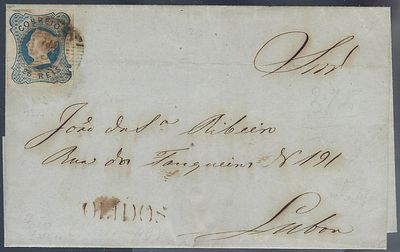 CORREIO
25 REIS
Snr
João da Sa Ribeiro
Rua dos Fanqueiros N 191
OBIDOS
Lisboa